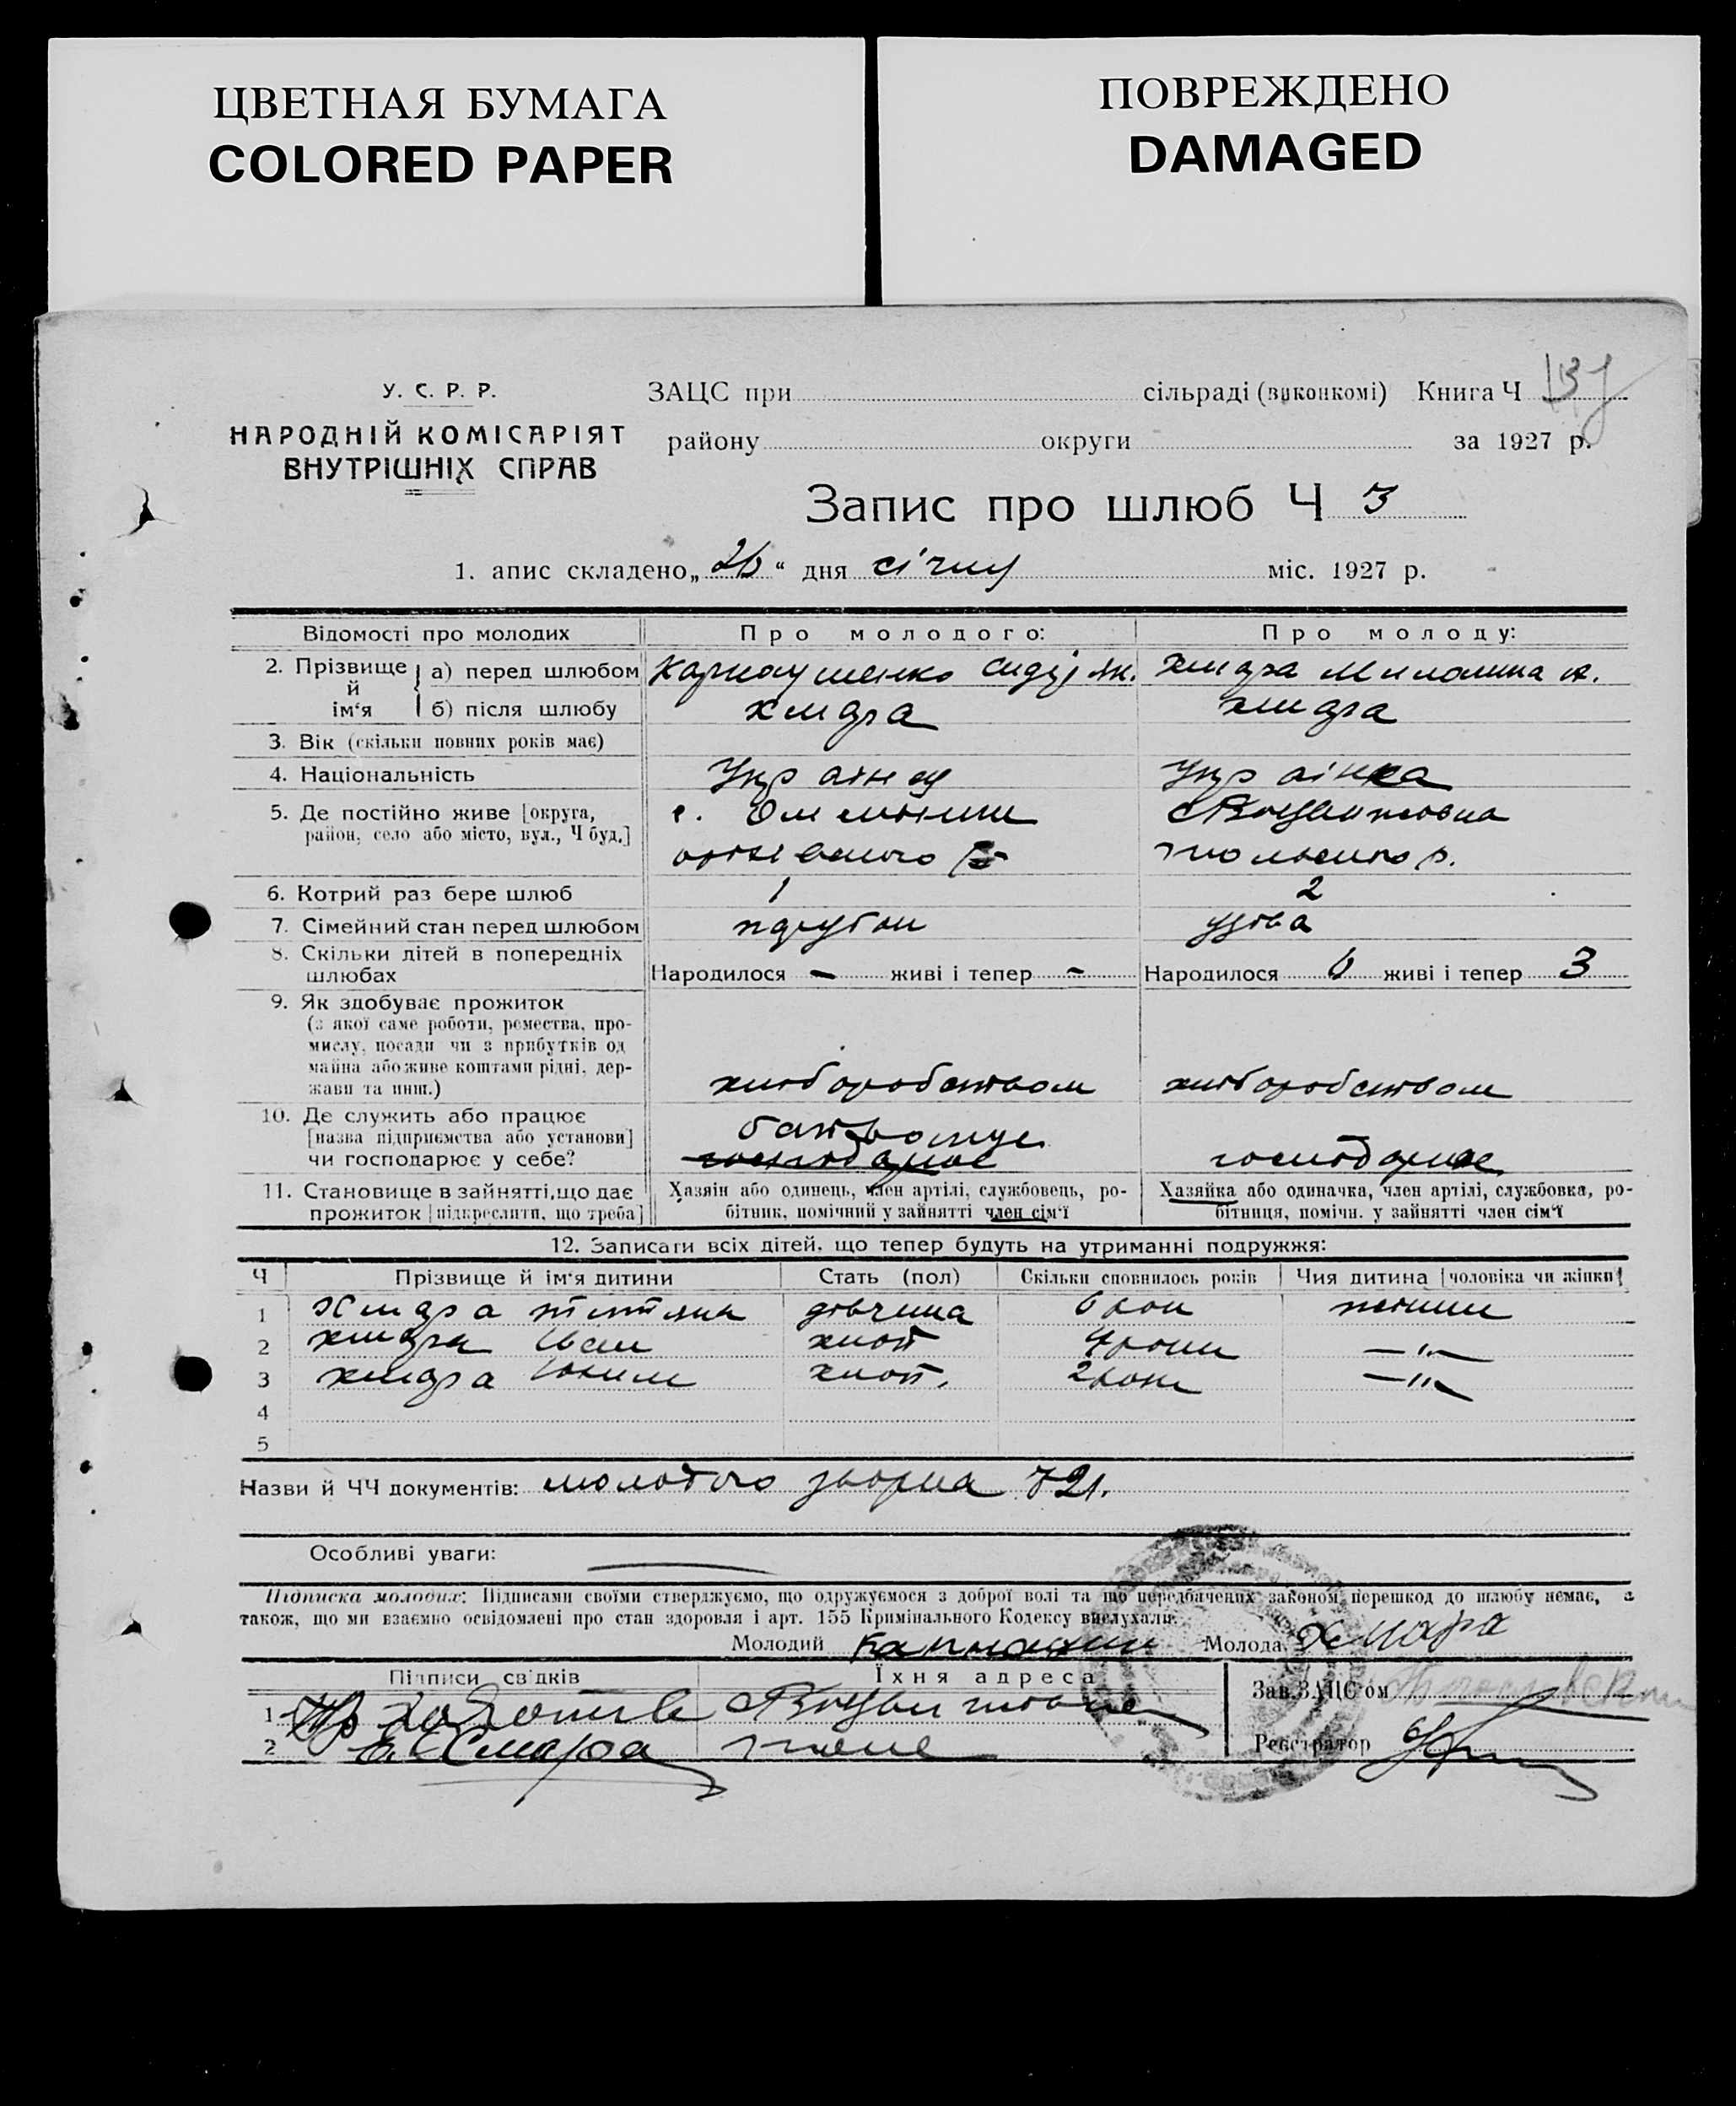 ЦВЕТНАЯ БУМАГА
COLORED PAPER
ПОВРЕЖДЕНО
DAMAGED
У. С. Р. Р.
НАРОДНІЙ КОМІСАРІЯТ
ВНУТРІШНІХ СПРАВ
ЗАЦС при сільраді (виконкомі) Книга Ч
району округи за 1927 р.
Запис про шлюб Ч 3
1. апис складено „26“ дня січну міс. 1927 р.
Відомості про молодих Про молодого: Про молоду:
2. Прізвище й ім‘я а) перед шлюбом Карнаушенко Хмара
б) після шлюбу Хмара Хмара
3. Вік (скільки повних років має)
4. Національність Українец Українка
5. Де постійно живе [округа, с.
район, село або місто, вул., Ч буд.]
6. Котрий раз бере шлюб 1 2
7. Сімейний стан перед шлюбом парубок удова
8. Скільки дітей в попередніх
шлюбах Народилося – живі і тепер – Народилося 6 живі і тепер 3
9. Як здобуває прожиток
(з якої саме роботи, ремества, про-
мислу, посади чи з прибутків од
майна або живе коштами рідні, дер-
жави та инш.) хліборобством хліборобством
10. Де служить або працює
[назва підприємства або установи]
чи господарює у себе? господарює господарює
11. Становище в зайнятті, що дає Хазяін або одинець, член артілі, службовець, ро- Хазяйка або одиначка, член артілі, службовка, ро-
прожиток [підкреслити, що треба] бітник, помічний у зайнятті член сім‘ї бітниця, помічн. у зайнятті член сім‘ї
12. Записати всіх дітей, що тепер будуть на утриманні подружжя:
Ч Прізвище й ім‘я дитини Стать (пол) Скільки сповнилось років Чия дитина [чоловіка чи жінки]
1 Хмара Титяна дівчина 6 рок жінки
2 Хмара Іван хлоп 4 роки — „ —
3 Хмара Юхим хлоп. 2 роки — „ —
4
5
Назви й ЧЧ документів: молодого 721.
Особливі уваги:
Підписка молодих: Підписами своїми стверджуємо, що одружуємося з доброї волі та що передбачених законом перешкод до шлюбу немає, а
також, що ми взаємно освідомлені про стан здоровля і арт. 155 Кримінального Кодексу вислухали.
Молодий Молода Хмара
Підписи свідків Їхня адреса Зав. ЗАЦС‘ом
1
2 Хмара Реєстратор